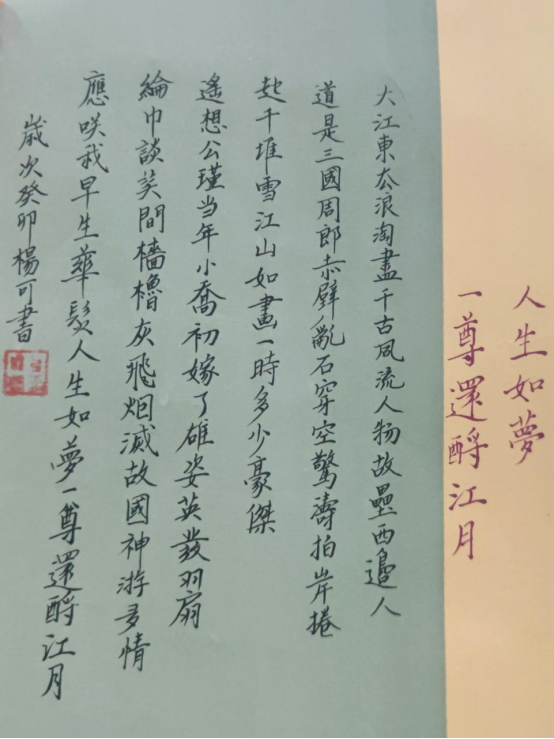 人生如夢
一尊還酹江月
大江東去浪淘盡千古風流人物故壘西邊人
道是三國周郎赤壁亂石穿空驚濤拍岸捲
起千堆雪江山如畫一時多少豪傑
遙想公瑾当年小喬初嫁了雄姿英發羽扇
綸巾談笑間檣櫓灰飛烟滅故國神游多情
應咲我早生華髮人生如夢一尊還酹江月
歲次癸卯楊可書